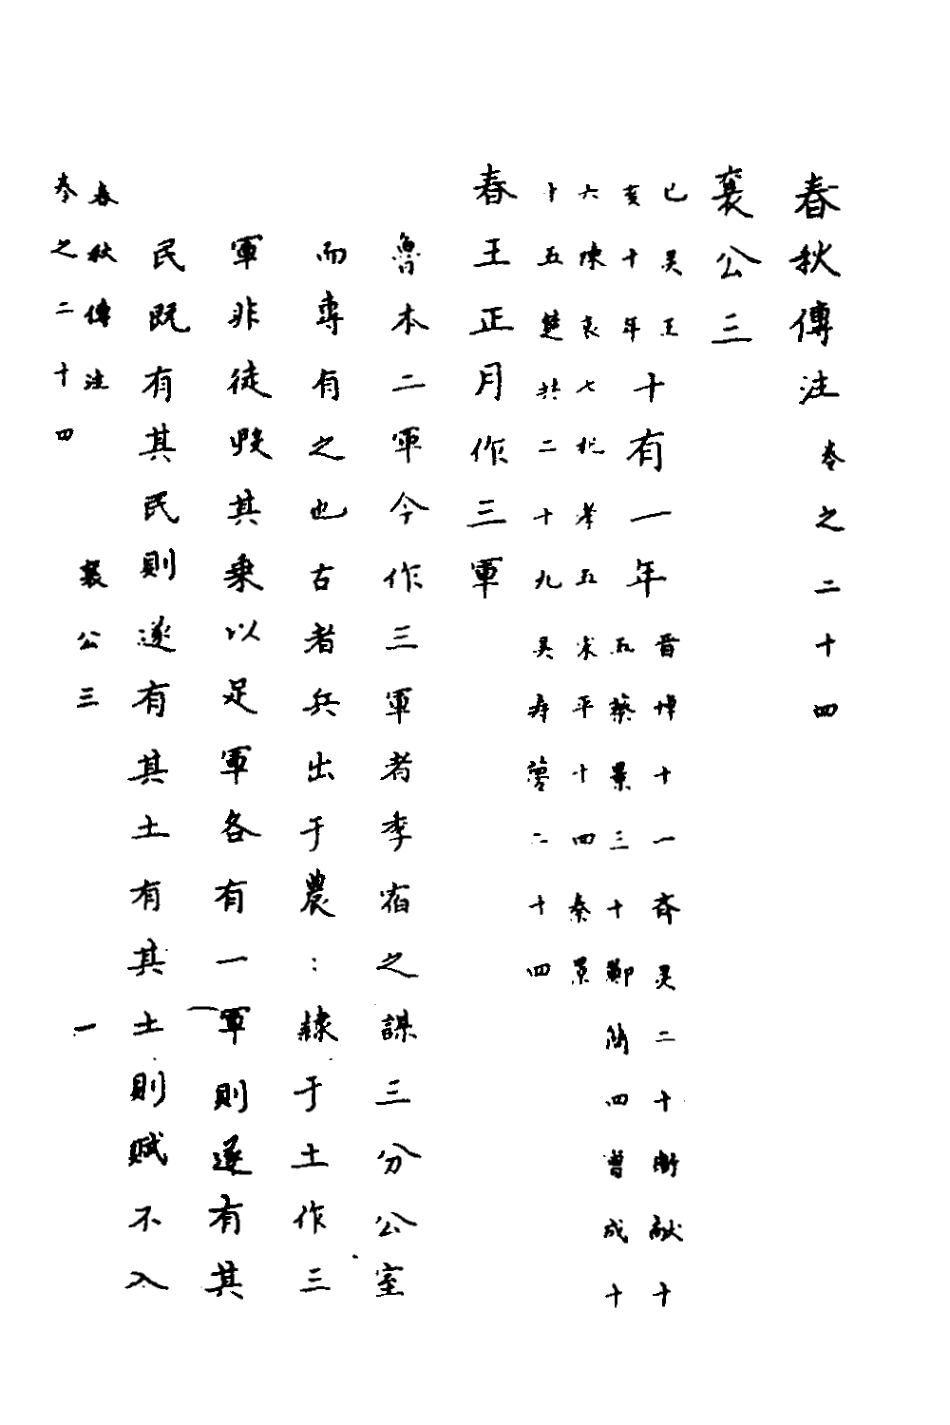 春秋傳注 卷之二十四
襄公三
已灵王
亥十年
十有一年
晋悼十一齐灵二十衛献十
五蔡景三十鄭简四曹成十
六陳哀七杞孝五宋平十四秦景
十五楚共二十九吴寿夢二十四
春王正月作三軍
魯本二軍今作三軍者季宿之謀三分公室
而專有之也古者兵出于農:隸于土作三
軍非徒毁其乗以足軍各有一軍則遂有其
民既有其民則遂有其土有其土則賦不入
春秋傳注 襄公三 一
卷之二十四